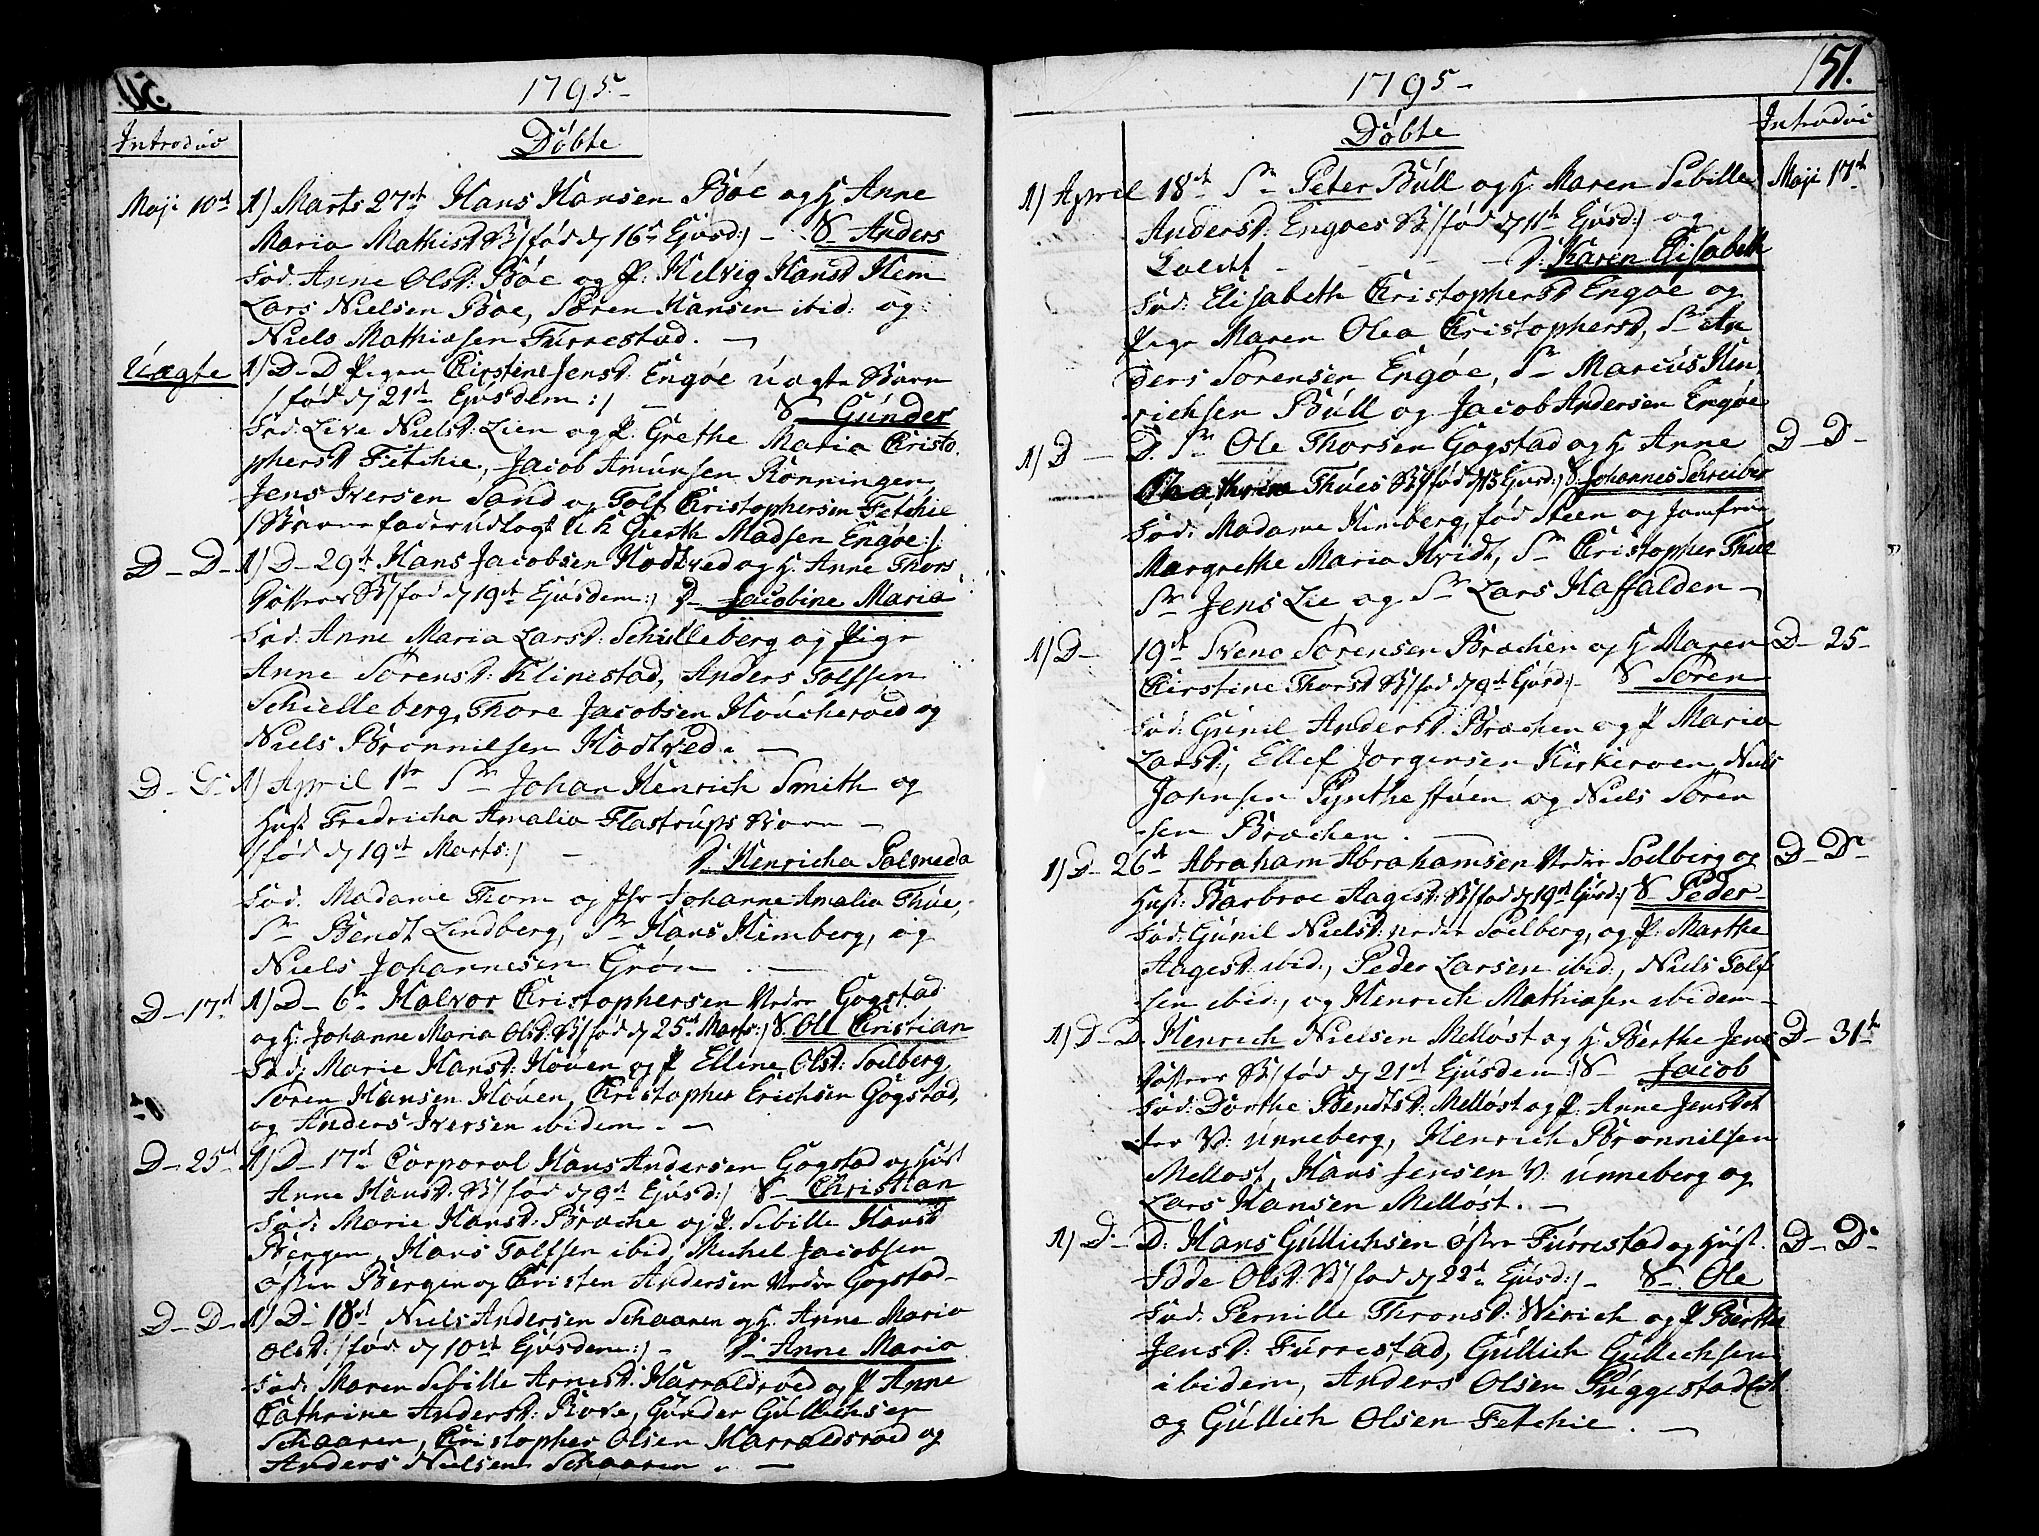 50.
1795.
Introduc
Döbte
Maji 10de
1) Marts 27de Hans Hansen Böe og H. Anne
Maria Mathisd: B/ fød d 16de Ejusd:/ - S. Anders
Fad: Anne Olsd: Böe og P. Helvig Hansd Hem
Lars Nielsen Böe, Sören Hansen ibid: og
Niels Mathiasen Furrestad. -
Uægte
1) D - D Pigen Kirstine Jensd: Engöe uægte Barn
/ fød d 21de Ejusdem:/ - S. Gunder
Fad: Live Nielsd: Lien og P. Grethe Maria Christo-
phersd Fetchie, Jacob Amunsen Rönningen
Jens Iversen Sand og Tolf Christophersen Fetchie
/ Barnefader udlagt U K Gierth Madsen Engöe:/
D - D -
1) D - 29de Hans Jacobsen Hodtved og H. Anne Thors
Dotters B/ fød d 19de Ejusdem:/ D - Jacobine Maria
Fad: Anne Maria Larsd: Schielleberg og Pige
Anne Sörensd: Klinestad, Anders Tolfsen
Schielleberg, Thore Jacobsen Houcheröed og
Niels Brönnilsen Hodtved. -
D - D -
1) April 1te Sr Johan Henrich Smith og
Hust Fredricha Amalia Flastrups Barn -
/ fød d 19de Marts:/ - D. Henricha Palmeda
Fad. Madame Thom og Jfr Johanne Amalia Thue,
Sr Bendt Lindberg, Sr Hans Himberg, og
Niels Johannesen Grön -
D - 17de
1) D - 6te Halvor Christophersen Nedre Gogstad
og H: Johanne Maria Olsd: B/ fød d 25de Marts:/ S. Ole Christian
Fad: Marie Hansd: Höuen og P Elline Olsd: Soelberg,
Sören Hansen Höuen, Christopher Erichsen Gogstad,
og Anders Iversen ibidem. -
D - 25de
1) D - 17de Corporal Hans Andersen Gogstad og Hust
Anne Hansd: B/ fød d 9de Ejusd:/ S - Christian
Fad: Marie Hansd: Brache og P. Sebille Hansd
Bergen, Hans Tolfsen ibid, Michel Jacobsen
Öster Bergen og Christen Andersen Nedre Gogstad -
D - D -
1) D - 18de Niels Andersen Schaaren og H. Anne Maria
Olsd: / fød d 10de Ejusdem:/ - D. Anne Maria
Fad: Maren Sebille Arnesd. Harraldsröed og P Anne
Cathrine Andersd: Rove, Gunder Gullichsen
Schaaren, Christopher Olsen Harraldsröed og
Anders Nielsen Schaaren. -
1795 -
151.
Döbte
Introduc
1) April 18de Sr Peter Bull og H. Maren Sebille
Maji 17de
Andersd: Engöes B/ fød d 11te Ejusd:/ og
- - - D. Karen Elisabeth
Fad: Elisabeth Christophersd Engöe og
Pige Maren Olea Christophersd, Sr An
ders Sörensen Engöe, Sr Marcus Hen
richsen Bull og Jacob Andersen Engöe
1) D - D. Sr Ole Thorsen Gogstad og H Anne
D - D -
Thues B/ fød d 15 Ejusd:/ S. Johannes Schreiber
Fad: Madame Himberg, fød Steen og Jomfrue
Margrethe Maria Hvidt, Sr Christopher Thue
Sr Jens Lie og Sr Lars Haffalden -
1) D - 19de Svend Sörensen Brachen og H Maren
D - 25 -
Kirstine Thorsd B/ fød d 9de Ejusd:/ - S Sören
Fad: Gunil Andersd: Brachen og P Maria
Larsd:, Ellef Jorgensen Kirkeroen, Niels
Johnsen Pyntherstuen og Niels Sören
-sen Brachen. -
1) D - 26de Abraham Abrahamsen Nedre Soelberg og
D - D -
Hust: Barbroe Aagesd: B/ fød d 19de Ejusd:/ S - Peder -
Fad: Gunil Nielsd: Nedre Soelberg, og P: Marthe
Aagesd: ibid:, Peder Larsen ibid:, Niels Tolf
-sen ibid:, og Henrich Mathiasen ibidem -
1) D - D. Henrich Nielsen Mellöst og H. Berthe Jens
D - 31te
Dotters B/ fød d 21de Ejusdem:/ S - Jacob
Fad: Dorthe Bendtsd: Mellöst og P: Anne Jensdot
ter V: Unneberg, Henrich Brönnilsen
Mellöst, Hans Jensen V: Unneberg og
Lars Hansen Mellöst. -
1) D - D. Hans Gullichsen Öster Furrestad og Hust.
D - D -
Idde Olsd: B/ fød d 22de Ejusd:/ - S - Ole
Fad: Pernille Thronsd: Werich og P Berthe
Jensd: Furrestad, Gullich Gullichsen
ibidem, Anders Olsen Puggestad
og Gullich Olsen Fetchie. -